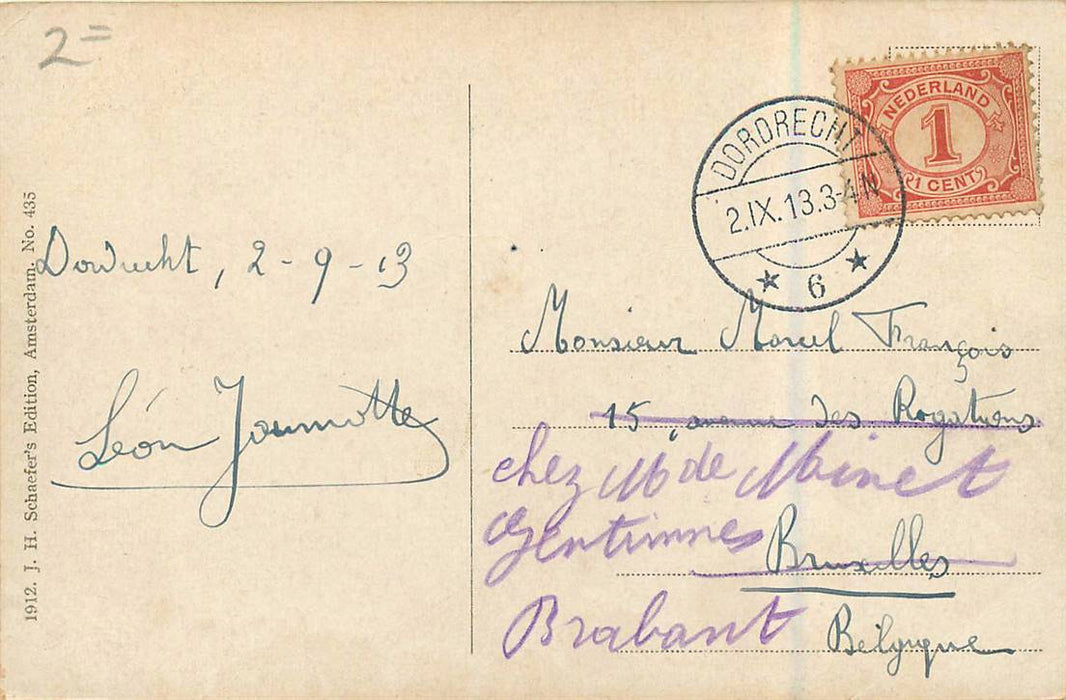 2=
NEDERLAND
1
1 CENT
DORDRECHT
2.IX.13.3-4 N
6
1912. J. H. Schaefer's Edition, Amsterdam. No. 435
Dordrecht, 2-9-13
Léon Jaumotte
Monsieur Marcel François
15, avenue des Rogations
chez M de Minet
Gentinnes
Bruxelles
Brabant
Belgique